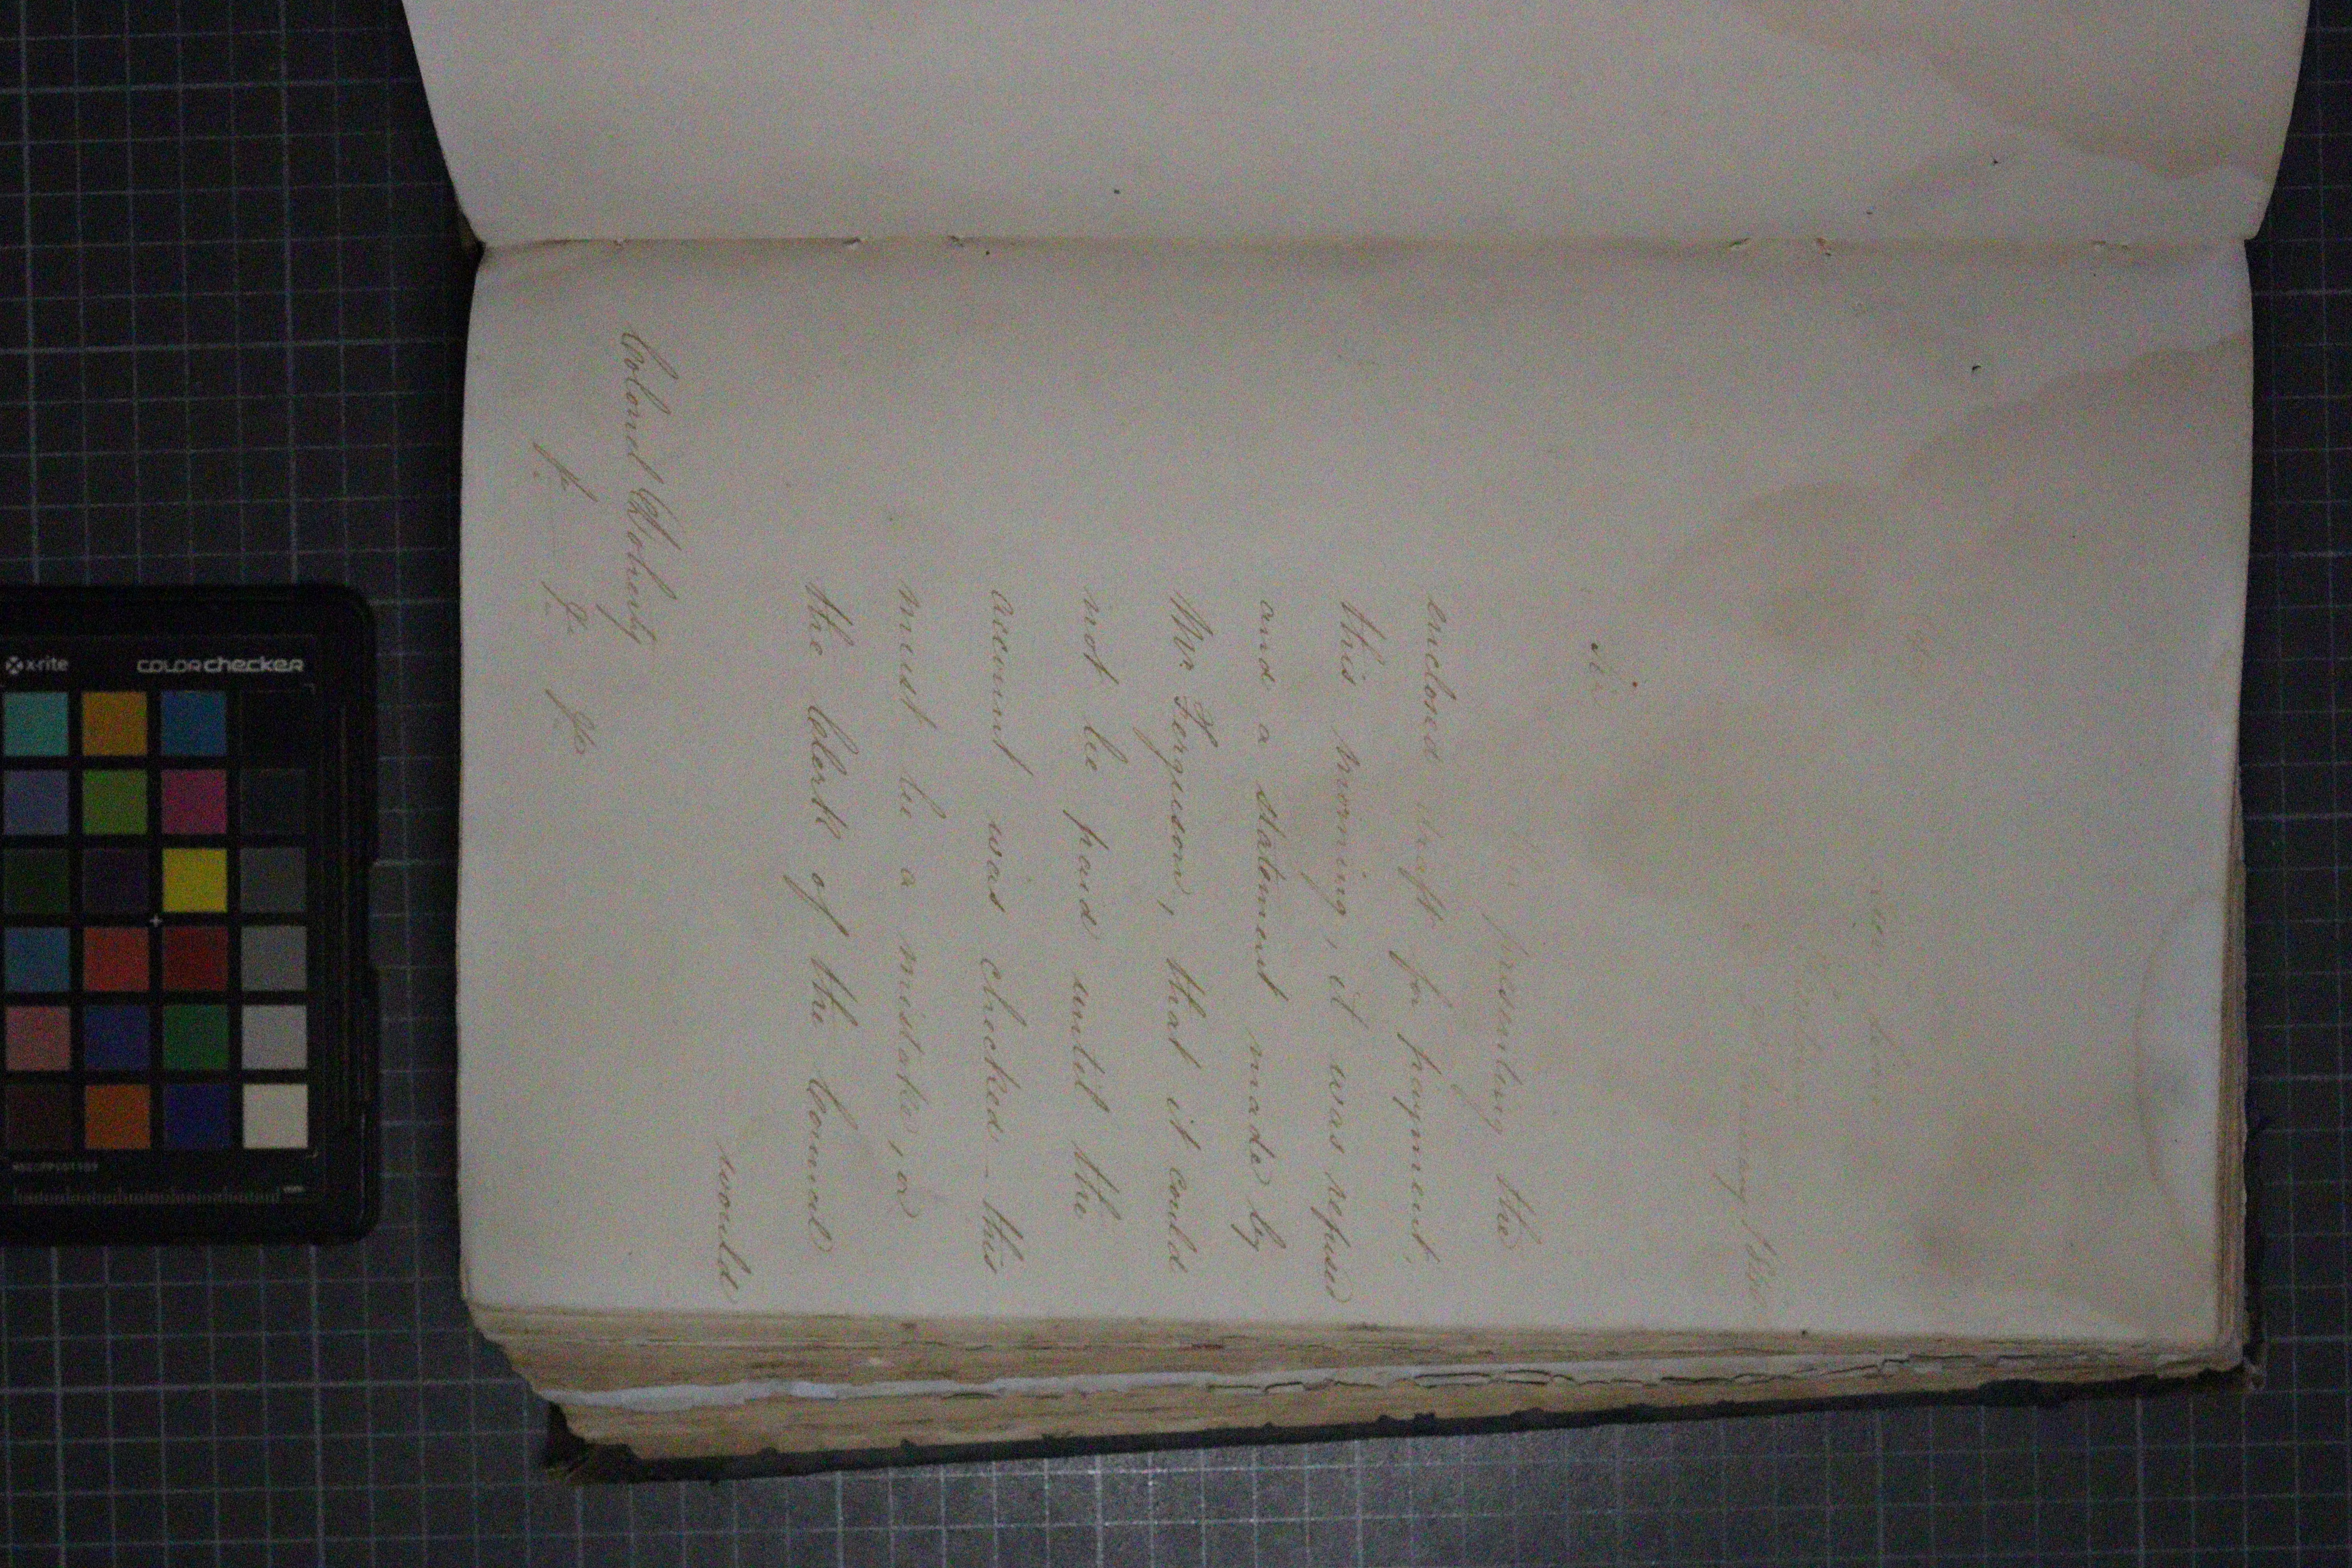 Sir
presenting the
enclosed draft for payment,
this morning, it was refused
and a statement made by
Mr. Ferguson, that it could
not be paid until the
account was checked - this
must be a mistake, as
the Clerk of the Council
would
Colonel Doherty
x-rite colorchecker